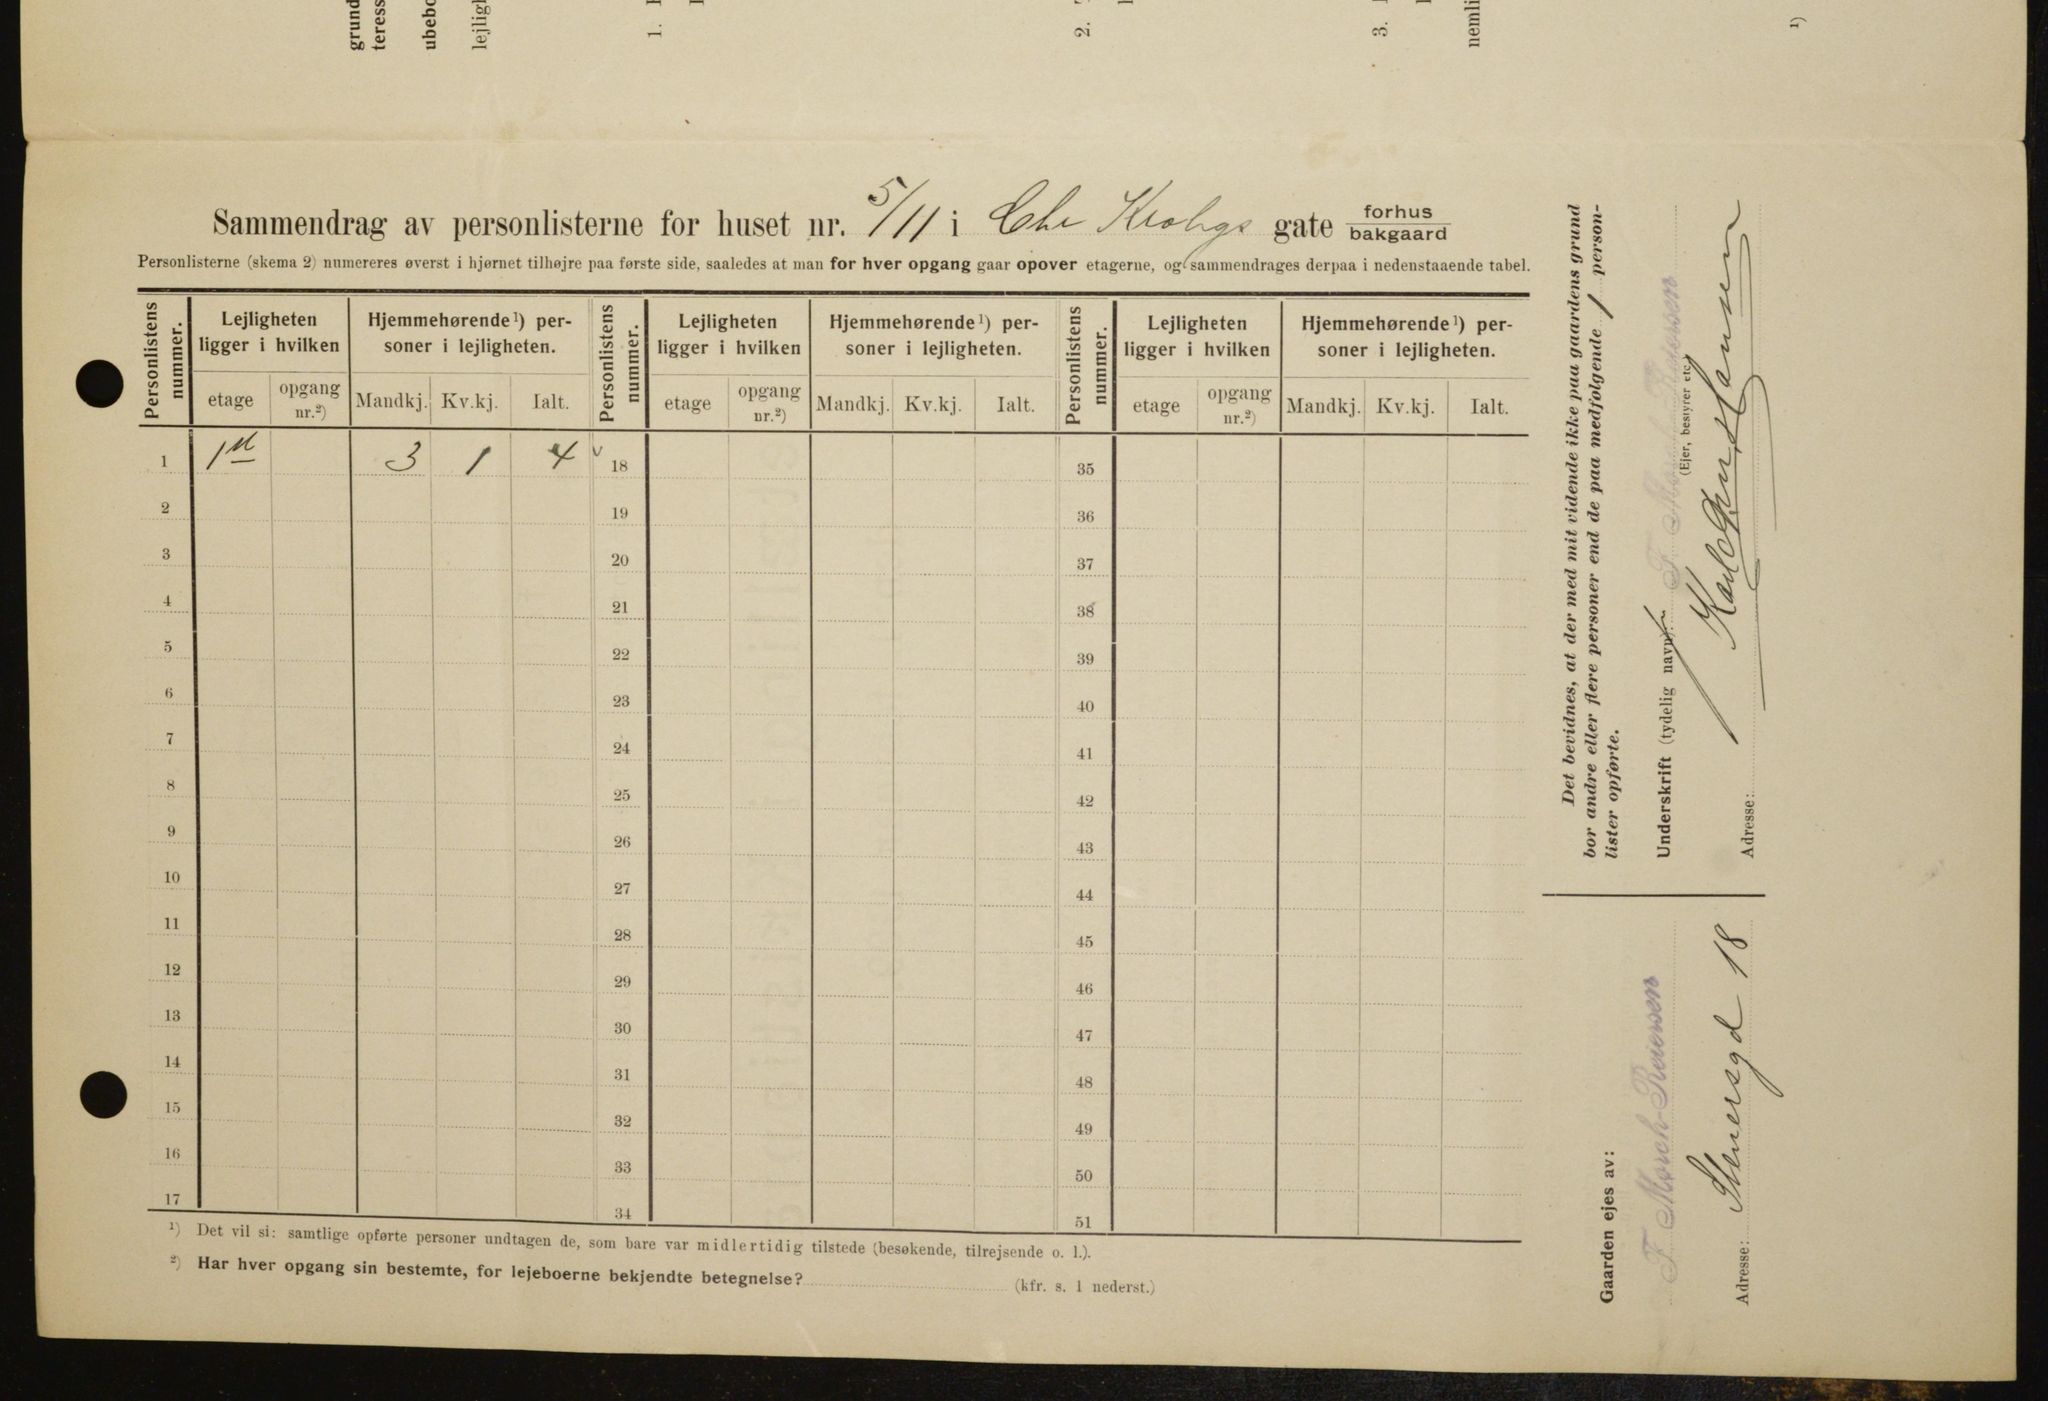 grund
teress
ubebo
lejligh
1.
2.
3.
nemli
1)
Sammendrag av personlisterne for huset nr. 5/11 i Chr Krohgs gate forhus bakgaard
Personlisterne (skema 2) numereres øverst i hjørnet tilhøjre paa første side, saaledes at man for hver opgang gaar opover etagerne, og sammendrages derpaa i nedenstaaende tabel.
Personlistens nummer. Lejligheten ligger i hvilken Hjemmehørende 1) personer i lejligheten. Personlistens nummer. Lejligheten ligger i hvilken Hjemmehørende 1) personer i lejligheten. Personlistens nummer. Lejligheten ligger i hvilken Hjemmehørende 1) personer i lejligheten.
etage opgang nr. 2) Mandkj. Kv.kj. Ialt. etage opgang nr. 2) Mandkj. Kv.kj. Ialt. etage opgang nr. 2) Mandkj. Kv.kj. Ialt.
1 1st 3 1 4 v 18 35
2 19 36
3 20 37
4 21 38
5 22 39
6 23 40
7 24 41
8 25 42
9 26 43
10 27 44
11 28 45
12 29 46
13 30 47
14 31 48
15 32 49
16 33 50
17 34 51
1) Det vil si: samtlige opførte personer undtagen de, som bare var midlertidig tilstede (besøkende, tilrejsende o. l.).
2) Har hver opgang sin bestemte, for lejeboerne bekjendte betegnelse? (kfr. s. 1 nederst.)
Det bevidnes, at der med mit vidende ikke paa gaardens grund
bor andre eller flere personer end de paa medfølgende 1 person-
lister opførte.
Underskrift (tydelig navn):
(Ejer, bestyrer etc.)
Adresse:
Gaarden ejes av:
F. Morch-Reiersen
Adresse: Stenersgd 18